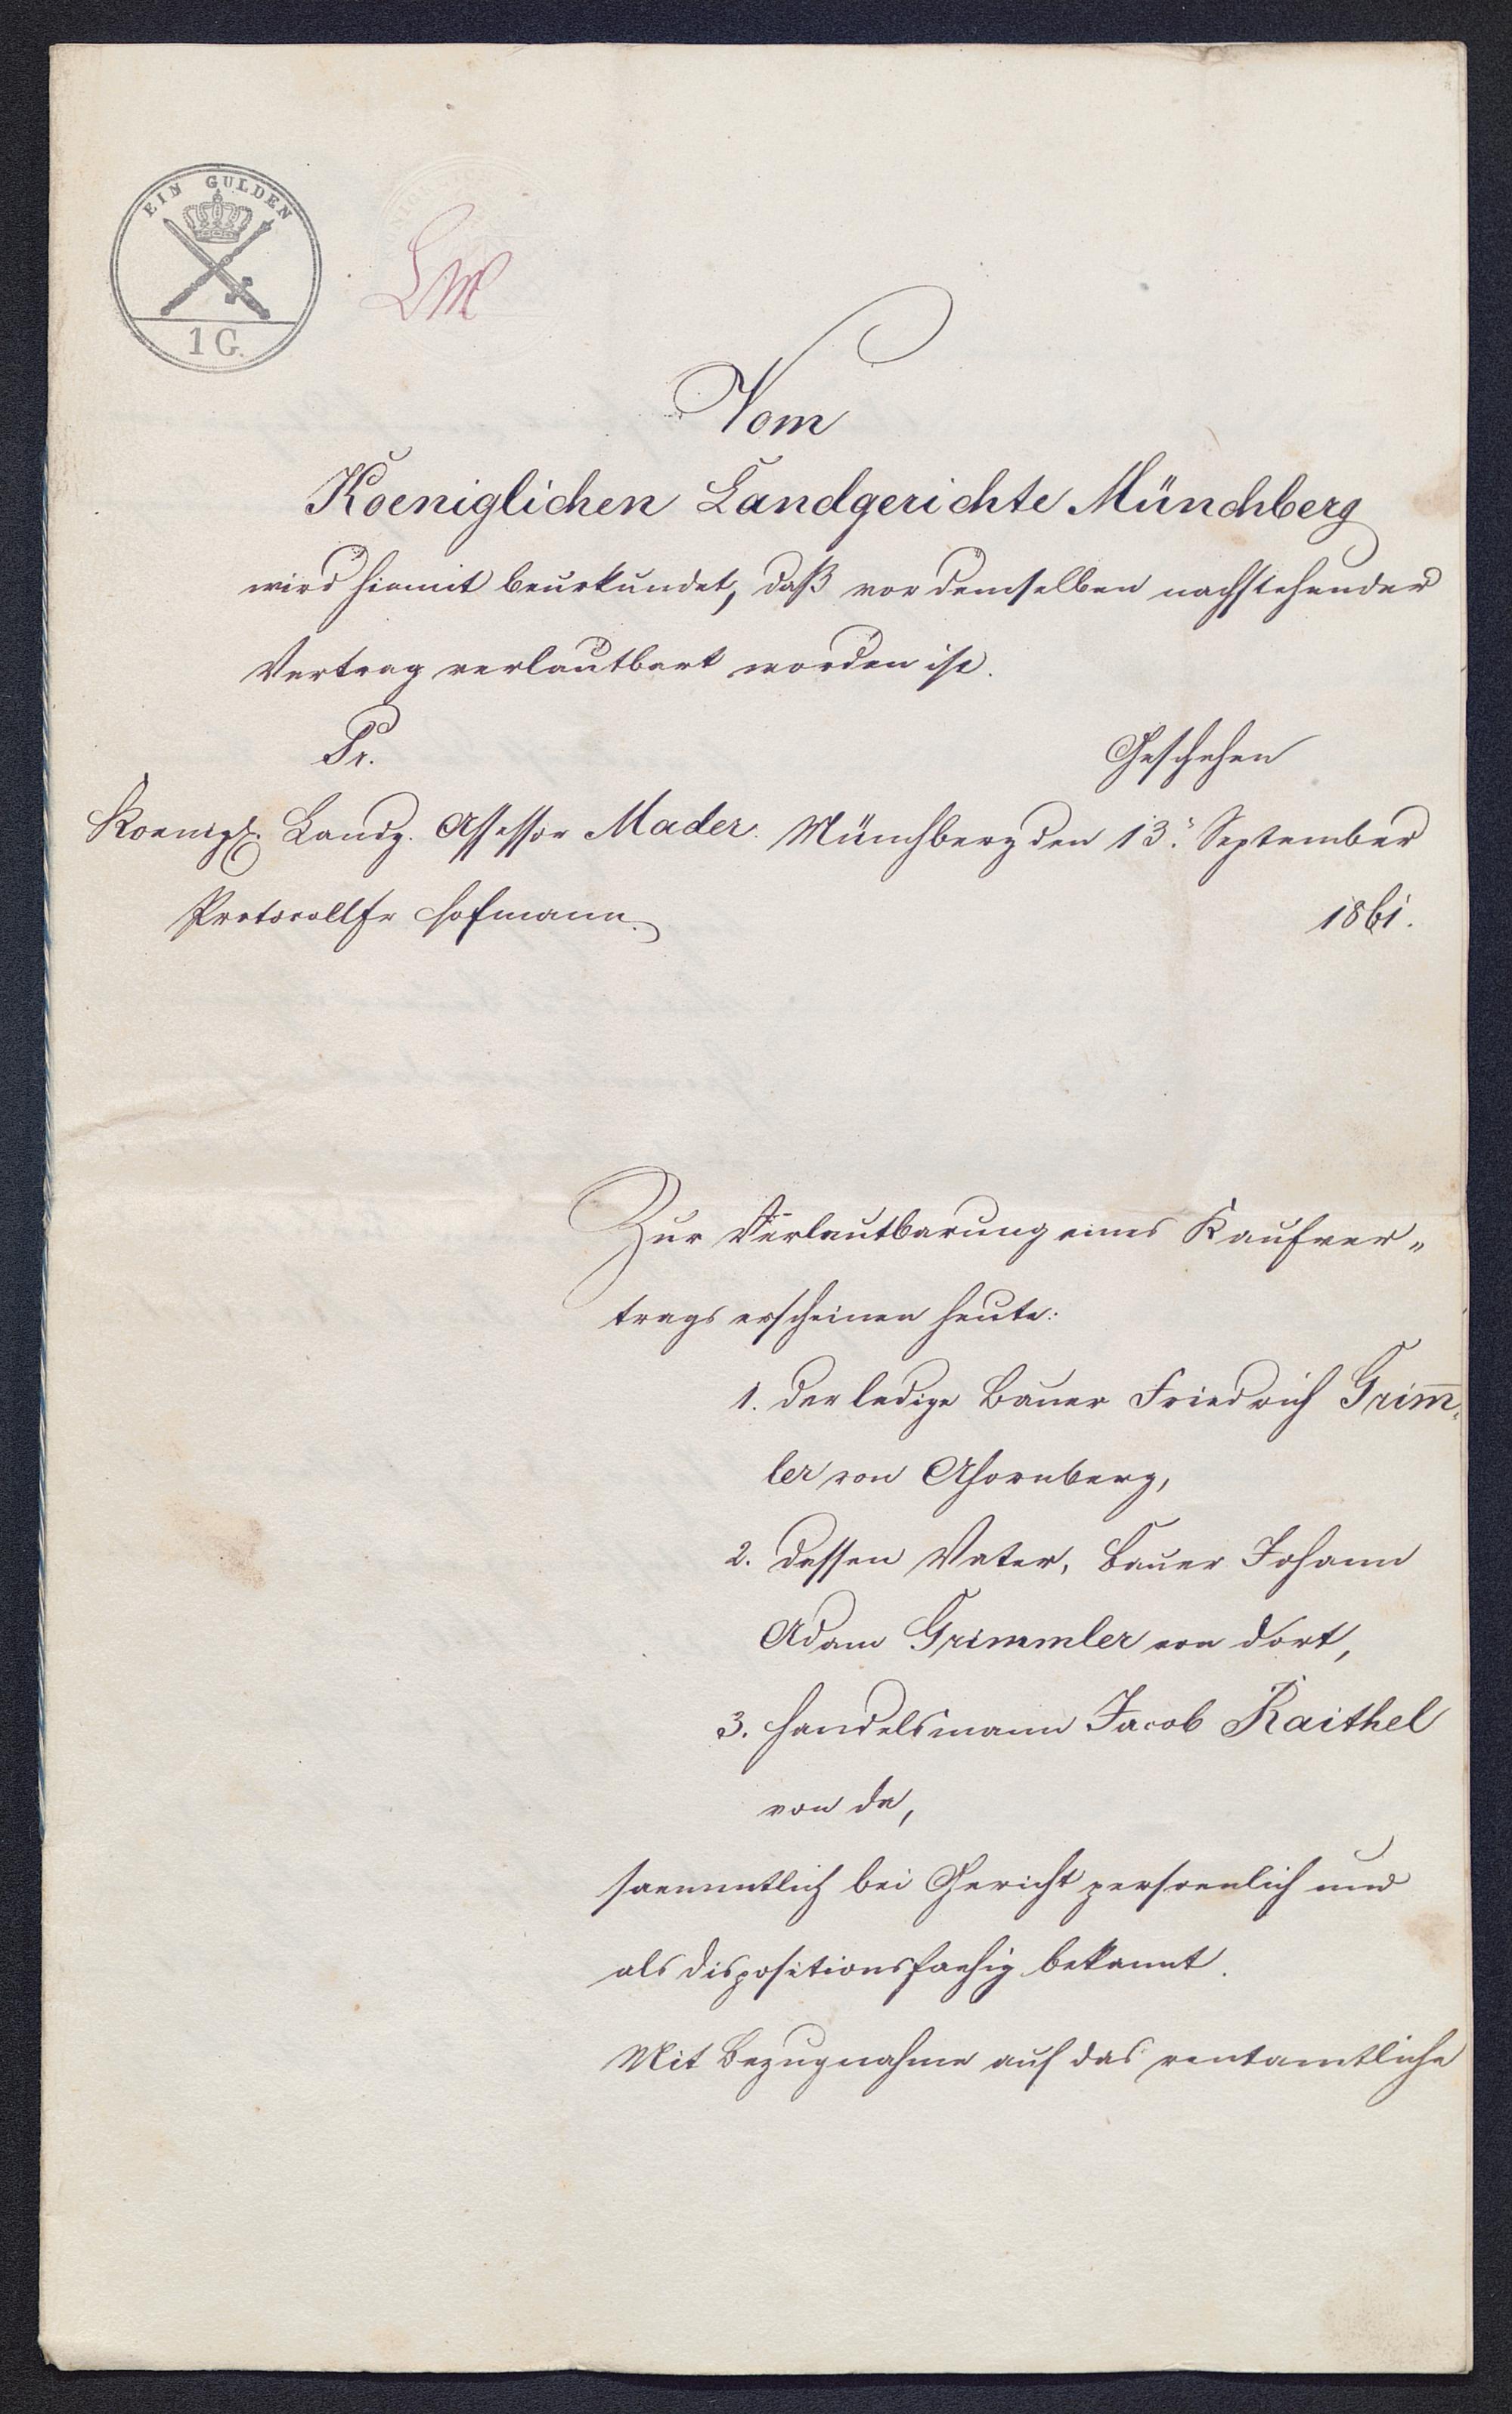 EIN GULDEN
1 G.
Vom
Koeniglichen Landgerichte Münchberg
wird hiemit beurkundet, daß vor demselben nachstehender
Vertrag verlautbart worden ist.
Pr.
Geschehen
Koenigl. Landg. Assessor Mader. Münchberg den 13. September
Protocollfr Hofmann.
1861.
Zur Verlautbarung eines Kaufver„
trags erscheinen heute:
1. der ledige Bauer Friedrich Grim̅„
ler von Ahornberg,
2. dessen Vater, Bauer Johann
Adam Grimmler von dort,
3. Handelsmann Jacob Raithel
von da,
saemmtlich bei Gericht persoenlich und
als dispositionsfaehig bekannt.
Mit Bezugnahme auf das rentamtliche